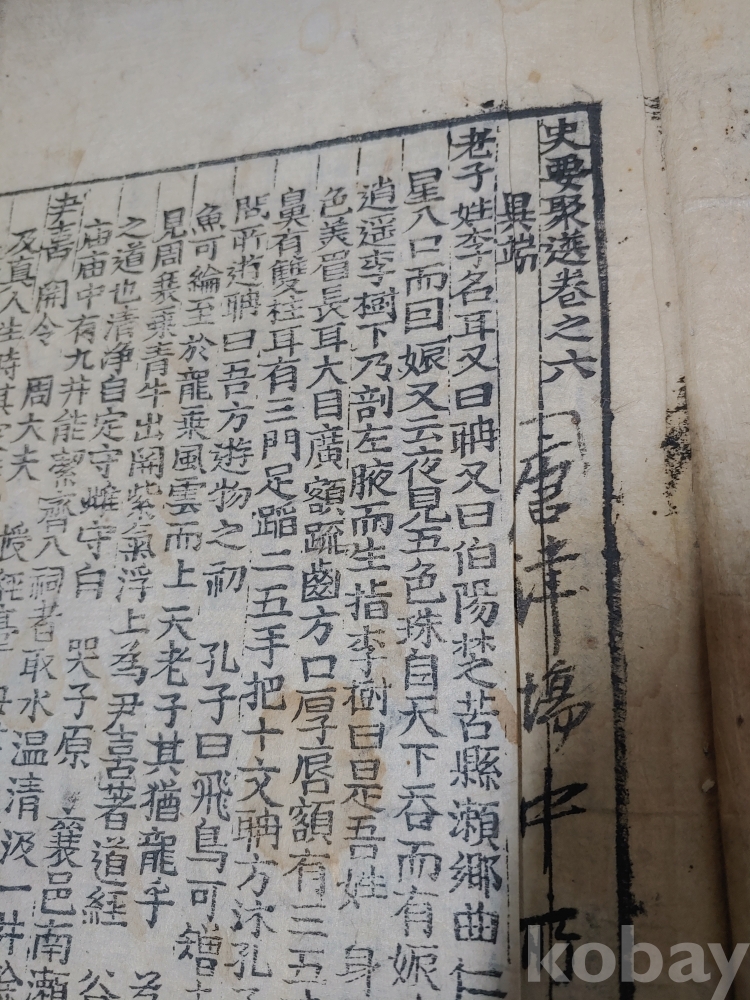 史要聚選卷之六
唐津場中
異端
老子姓李名耳又曰聃又曰伯陽楚苦縣瀬鄉曲仁
星入口而囙娠又云夜見五色珠自天下吞而有娠
逍遥李樹下乃剖左腋而生指李樹曰是吾姓 身
色美眉長耳大目廣額疏齒方口厚唇額有三五
鼻有雙柱耳有三門足蹈二五手把十文聃方沐孔子
問所遊聃曰吾方遊物之初 孔子曰飛鳥可矰
魚可綸至於龍乘風雲而上天老子其猶龍乎
見周衰乘青牛出關紫氣浮上為尹喜著道經
之道也清淨自定守雌守白 哭子原 襄邑南瀬
廟廟中有九井能潔齊入祠者取水温清汲一井
尹喜 關令 周大夫 授經臺
及真人生時其
kobay